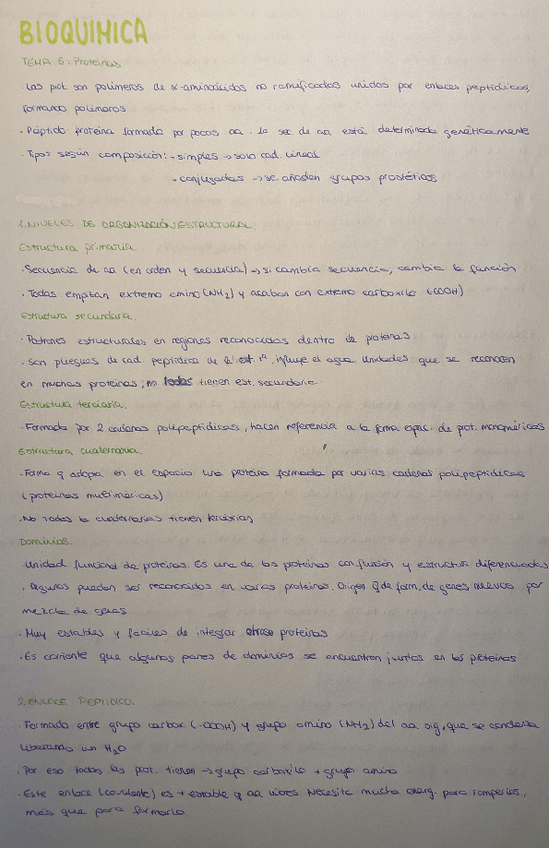 BIOQUIMICA
TEMA 6: Proteínas
· Las prot. son polímeros de α-aminoácidos no ramificados unidos por enlaces peptídicos,
formando polímeros
· Péptido proteína formada por pocos aa. La sec de aa está determinada genéticamente
· Tipos según composición: - simples → solo cad. lineal
- conjugadas → se añaden grupos prostéticos
1. NIVELES DE ORGANIZACIÓN ESTRUCTURAL
Estructura primaria.
· Secuencia de aa (en orden y secuencia) → si cambia secuencia, cambia la función
· Todas empiezan extremo amino (NH2) y acaban con extremo carboxilo (COOH)
Estructura secundaria.
· Patrones estructurales en regiones reconocidas dentro de proteínas.
· Son pliegues de cad. peptídica de la est. 1ª, influye el agua. Unidades que se reconocen
en muchas proteínas; no todas tienen est. secundaria.
Estructura terciaria.
· Formada por 2 cadenas polipeptídicas, hacen referencia a la forma espac. de prot. monoméricas
Estructura cuaternaria
· Forma q adopta en el espacio una proteína formada por varias cadenas polipeptídicas
(proteínas multiméricas)
· No todas la cuaternarias tienen terciarias
Dominios.
· Unidad funcional de proteínas. Es una de las proteínas con función y estructura diferenciadas
· Algunos pueden ser reconocidos en varias proteínas. Origen de form. de genes nuevos por
mezcla de
· Muy estables y faciles de integrar proteínas
· Es corriente que algunos pares de dominios se encuentren juntos en las proteínas
2. ENLACE PEPTÍDICO.
· Formado entre grupo carbox. (-COOH) y grupo amino (NH2) del aa sig, que se condensa
liberando un H2O
· Por eso todas las prot. tienen → grupo carboxilo + grupo amino
· Este enlace (covalente) es + estable q aa libres. Necesita mucha energ. para romperlos,
más que para formarlo.